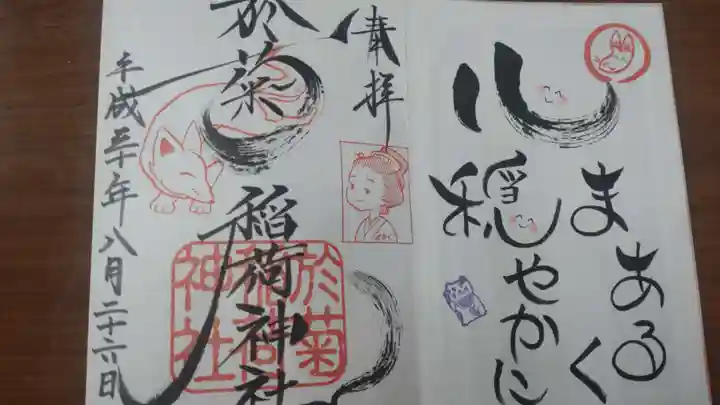 心まあるく
穏やかに
奉拝
於菊稲荷神社
平成三十年八月二十六日
於菊
稲荷
神社